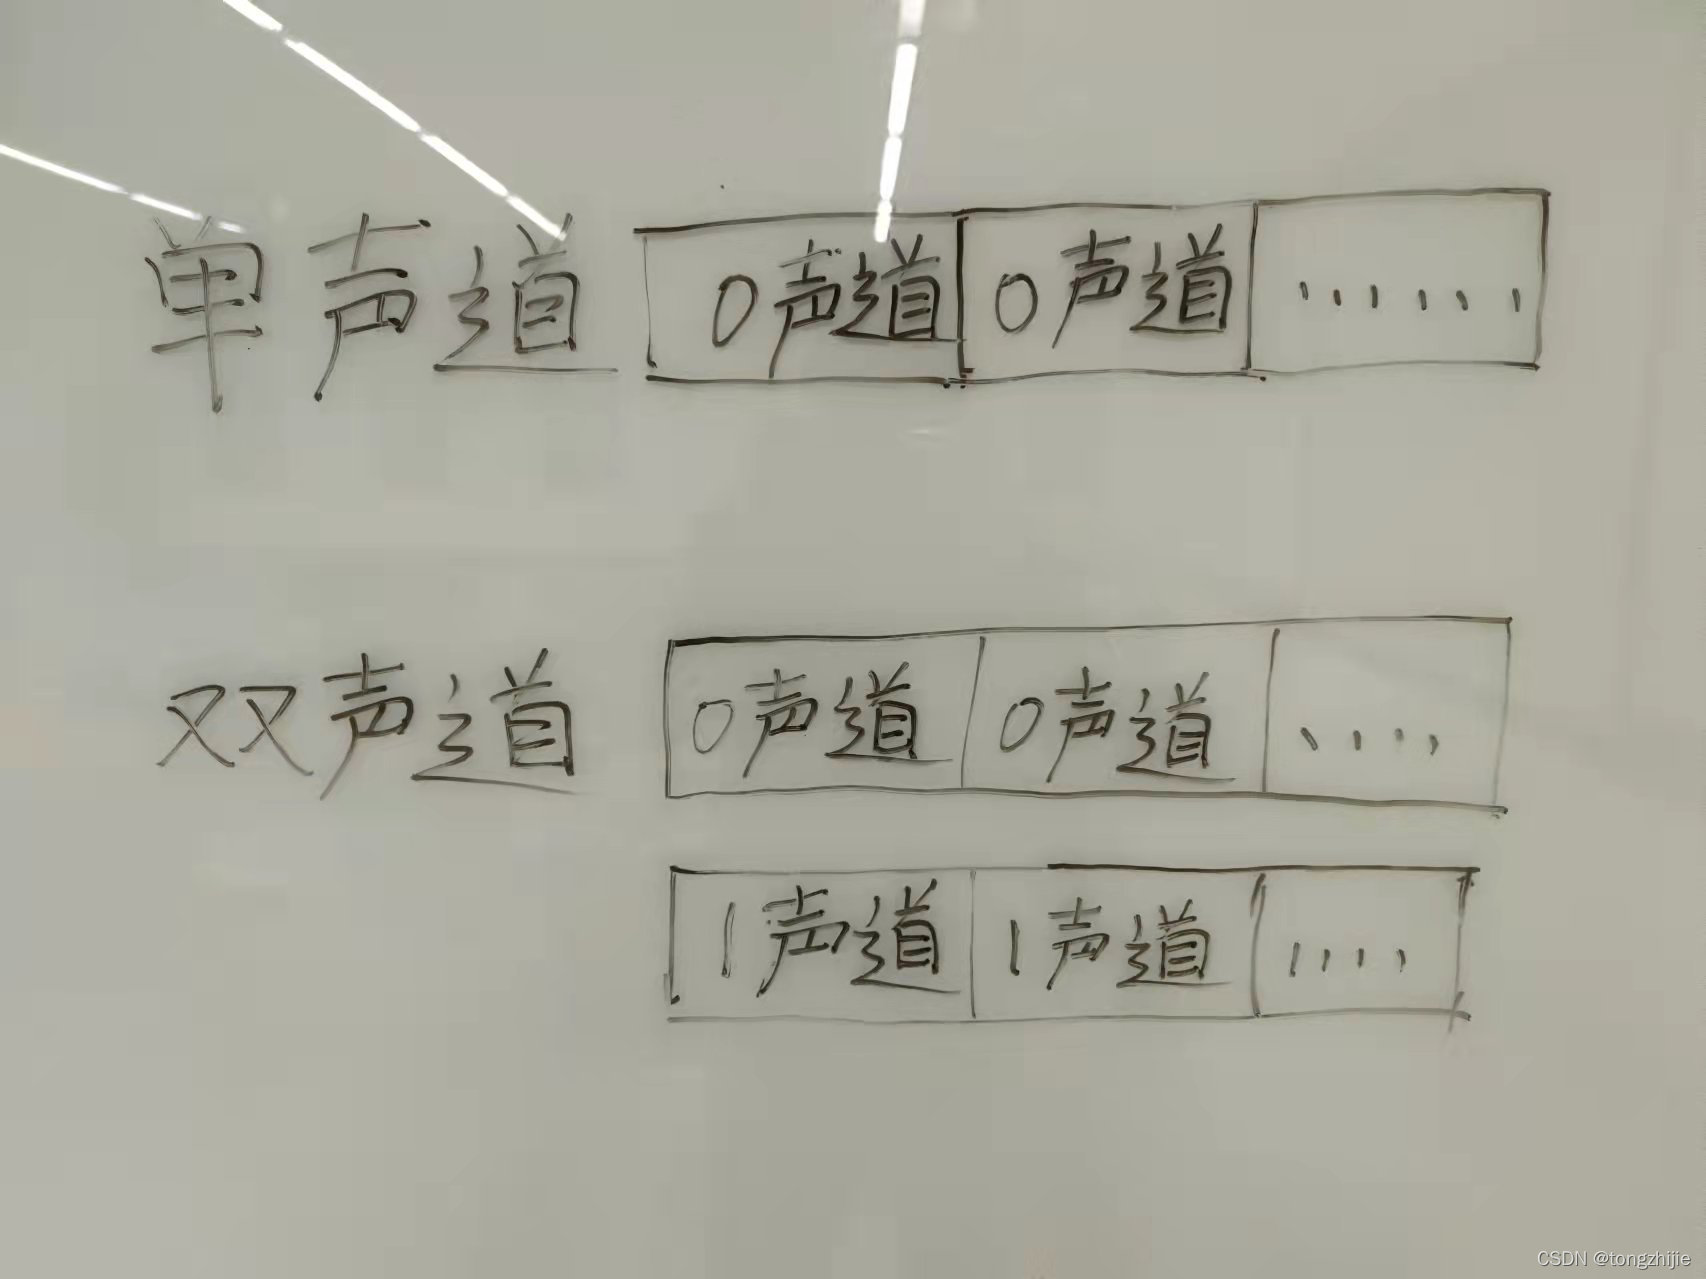 单声道 0声道 0声道 ......
双声道 0声道 0声道 ....
1声道 1声道 ....
CSDN @tongzhijie